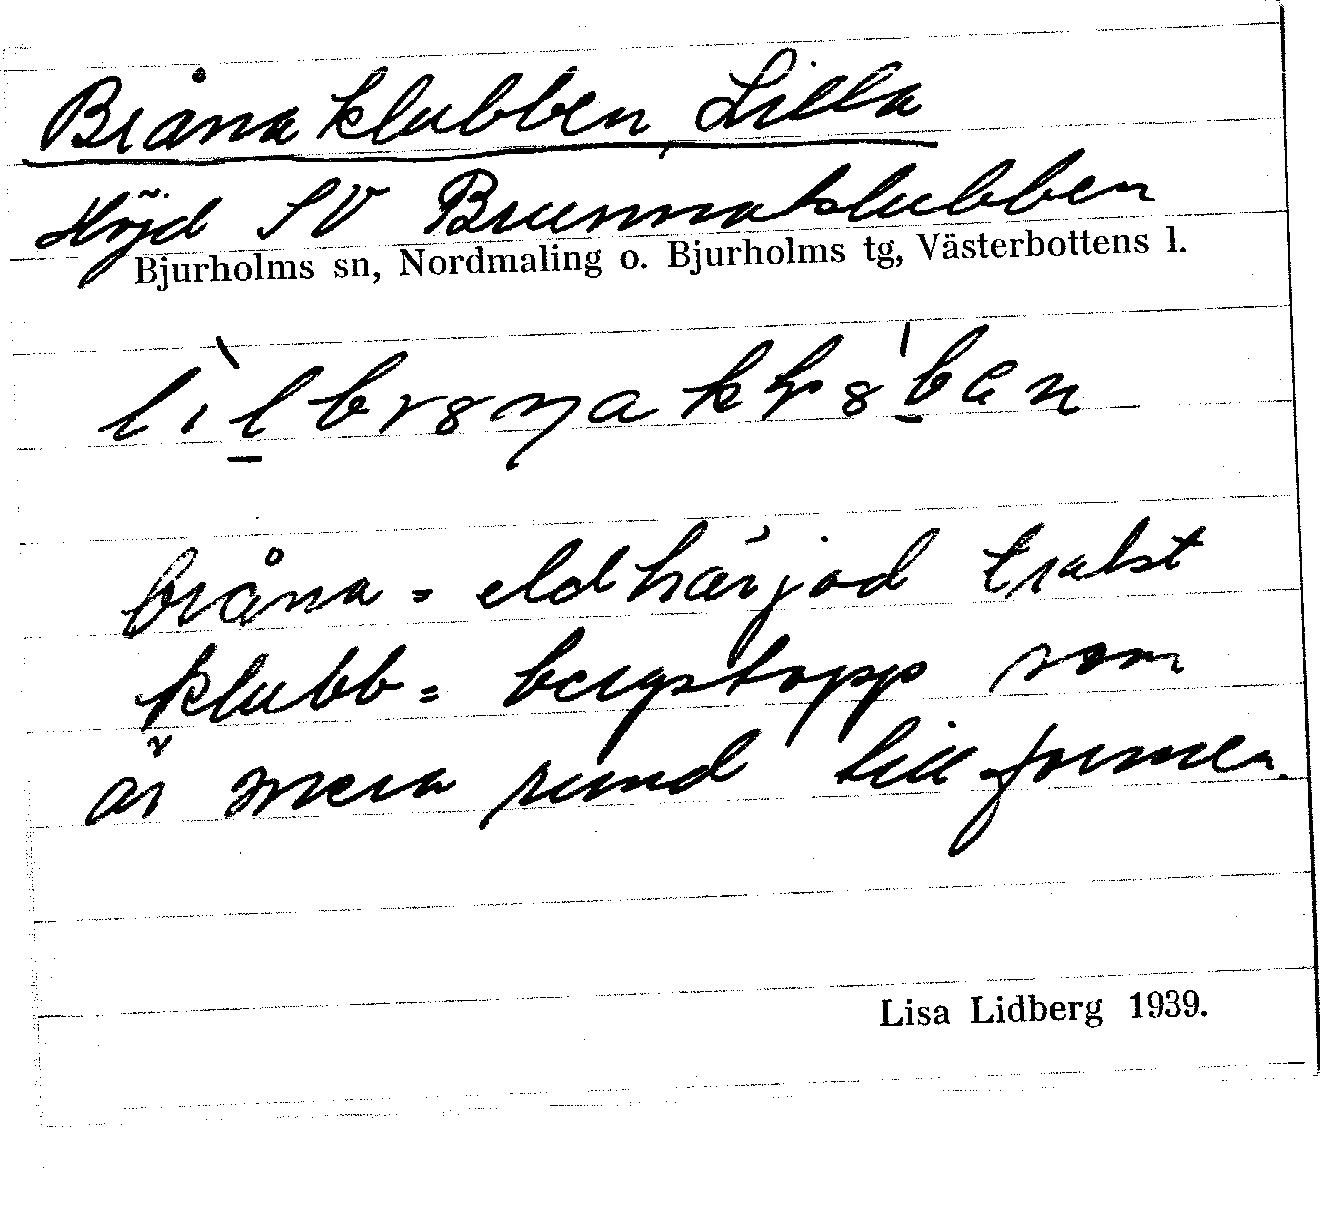 Bråna klubben, Lilla
Höjd SV Brunnaklubben
Bjurholms sn, Nordmaling o. Bjurholms tg, Västerbottens l.
bråna = eldhärjad trakt
klubb = bergstopp som
är mera rund till formen.
Lisa Lidberg 1939.